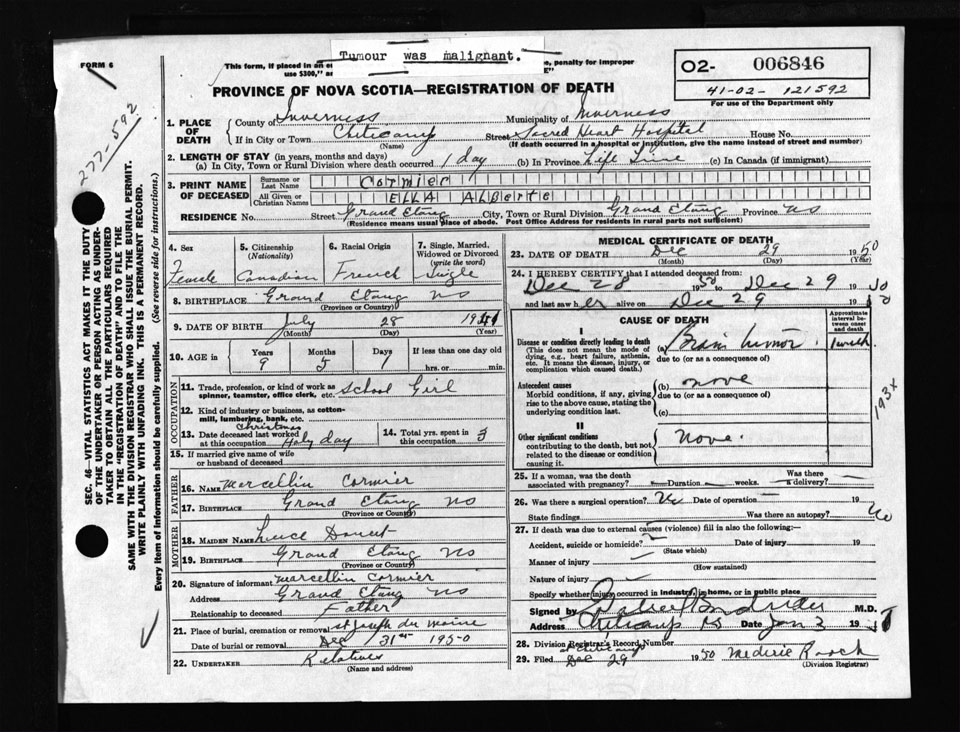 FORM 6
Tumour was malignant.
This form, if placed in an
penalty for improper
use $300,"
PROVINCE OF NOVA SCOTIA—REGISTRATION OF DEATH
O2- 006846
41-02- 121592
For use of the Department only
277-592
SEC. 46—VITAL STATISTICS ACT MAKES IT THE DUTY
OF THE UNDERTAKER OR PERSON ACTING AS UNDER-
TAKER TO OBTAIN ALL THE PARTICULARS REQUIRED
IN THE "REGISTRATION OF DEATH" AND TO FILE THE
SAME WITH THE DIVISION REGISTRAR WHO SHALL ISSUE THE BURIAL PERMIT.
WRITE PLAINLY WITH UNFADING INK. THIS IS A PERMANENT RECORD.
Every item of information should be carefully supplied. (See reverse side for instructions.)
1. PLACE OF DEATH
County of Inverness Municipality of Inverness
If in City or Town Cheticamp Street Sacred Heart Hospital House No.
(Name) (If death occurred in a hospital or institution, give the name instead of street and number)
2. LENGTH OF STAY (in years, months and days)
(a) In City, Town or Rural Division where death occurred 1 day (b) In Province Life Time (c) In Canada (if immigrant)
3. PRINT NAME OF DECEASED
Surname or Last Name Cormier
All Given or Christian Names ELLA ALBerte
RESIDENCE No. Street Grand Etang City, Town or Rural Division Grand Etang Province NS
(Residence means usual place of abode. Post Office Address for residents in rural parts not sufficient)
4. Sex
Female
5. Citizenship (Nationality)
Canadian
6. Racial Origin
French
7. Single, Married, Widowed or Divorced (write the word)
Single
8. BIRTHPLACE Grand Etang NS
(Province or Country)
9. DATE OF BIRTH July 28
(Month) (Day) (Year)
10. AGE in Years Months Days If less than one day
9 5 1 hrs. or min.
OCCUPATION
11. Trade, profession, or kind of work as spinner, teamster, office clerk, etc. School Girl
12. Kind of industry or business, as cotton-mill, lumbering, bank, etc.
13. Date deceased last worked at this occupation Christmas Holy day
14. Total yrs. spent in this occupation 3
15. If married give name of wife or husband of deceased
FATHER
16. NAME Marcellin Cormier
17. BIRTHPLACE Grand Etang NS
(Province or Country)
MOTHER
18. MAIDEN NAME Luce Doucet
19. BIRTHPLACE Grand Etang NS
(Province or Country)
20. Signature of informant Marcellin Cormier
Address Grand Etang NS
Relationship to deceased Father
21. Place of burial, cremation or removal St Joseph du Moine
Date of burial or removal Dec 31st 1950
22. UNDERTAKER Relatives
(Name and address)
MEDICAL CERTIFICATE OF DEATH
23. DATE OF DEATH Dec 29 1950
(Month) (Day) (Year)
24. I HEREBY CERTIFY that I attended deceased from:
Dec 28 1950 to Dec 29 1950
and last saw her alive on Dec 29 1950
CAUSE OF DEATH
Approximate interval between onset and death
I
Disease or condition directly leading to death
(This does not mean the mode of dying, e.g., heart failure, asthenia, etc. It means the disease, injury, or complication which caused death.)
(a) Brain tumor. 1 week
due to (or as a consequence of)
Antecedent causes
Morbid conditions, if any, giving rise to the above cause, stating the underlying condition last.
(b) none
due to (or as a consequence of)
(c)
II
Other significant conditions
contributing to the death, but not related to the disease or condition causing it.
None.
193x
25. If a woman, was the death associated with pregnancy? Duration weeks. Was there a delivery?
26. Was there a surgical operation? No Date of operation 19
State findings Was there an autopsy? No
27. If death was due to external causes (violence) fill in also the following:—
Accident, suicide or homicide? Date of injury 19
(State which)
Manner of injury
(How sustained)
Nature of injury
Specify whether injury occurred in industry, in home, or in public place.
Signed by M.D.
Address Cheticamp NS Date Jan 2 19
28. Division Registrar's Record Number
29. Filed Dec 29 1950
(Division Registrar)